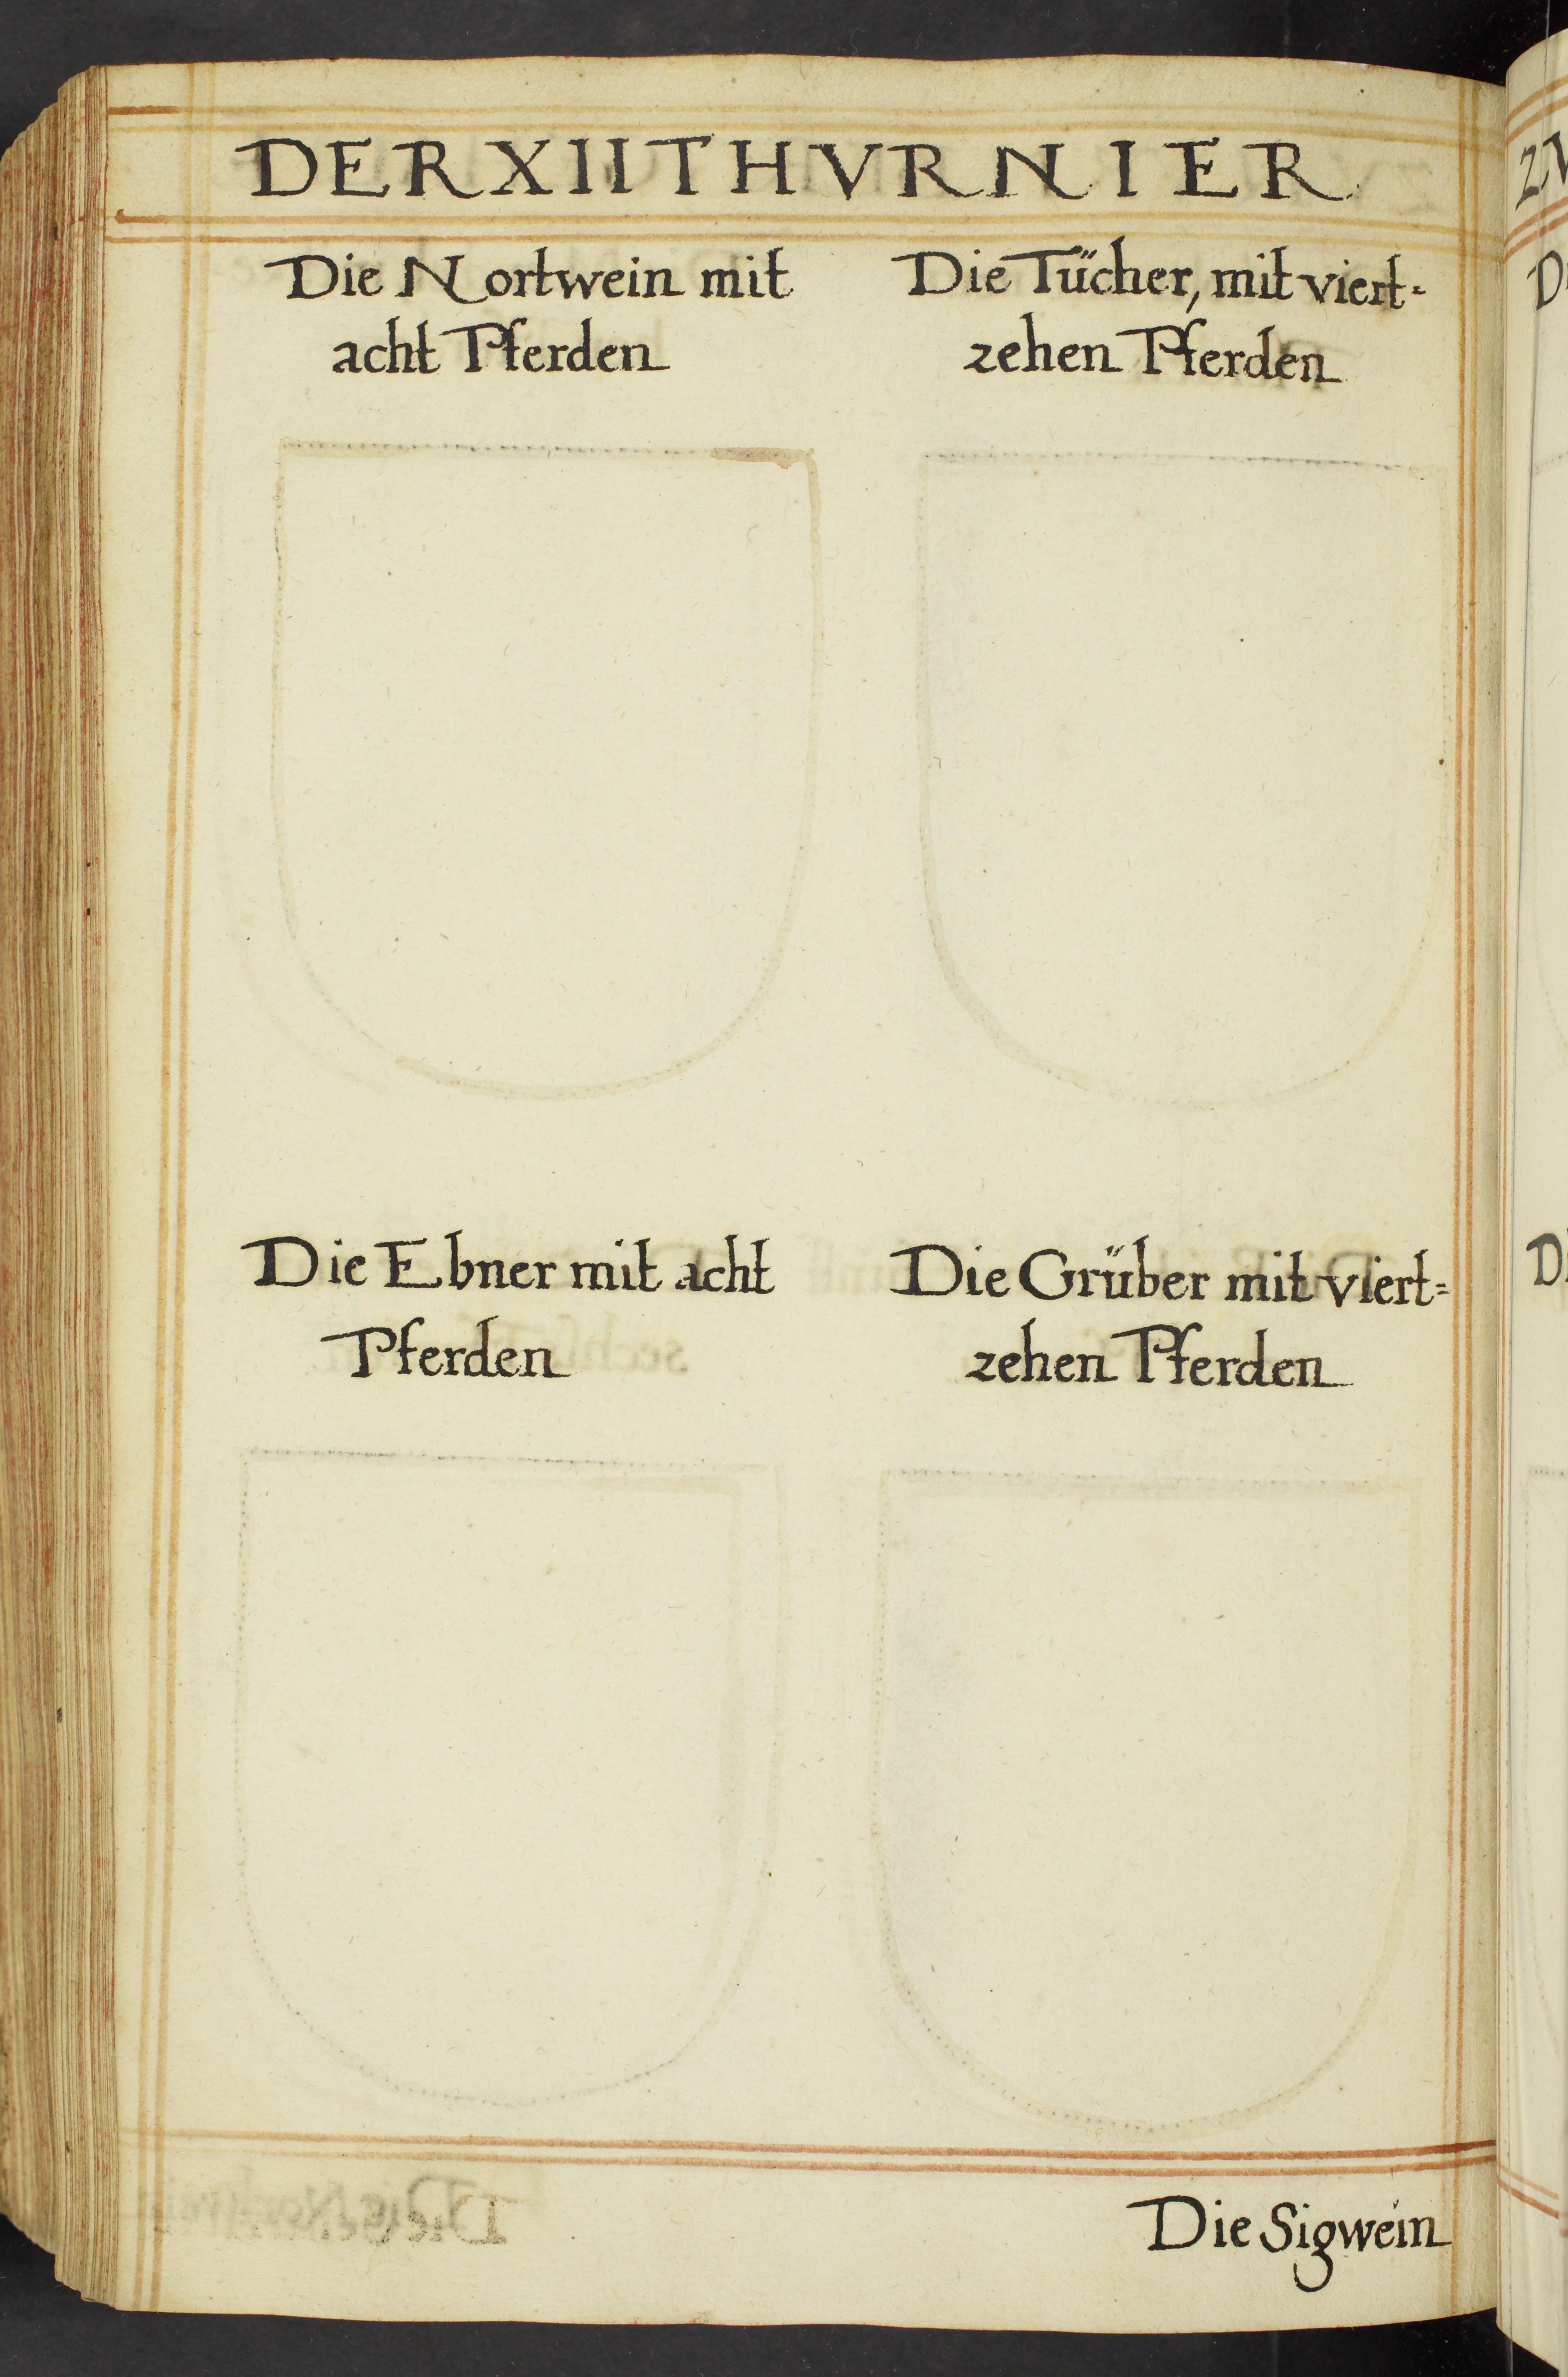 DER XII THVRNIER
Die Nortwein mit
acht Pferden
Die Tücher, mit viert=
zehen Pferden
Die Ebner mit acht
Pferden
Die Grüber mit viert=
zehen Pferden
Die Sigwein